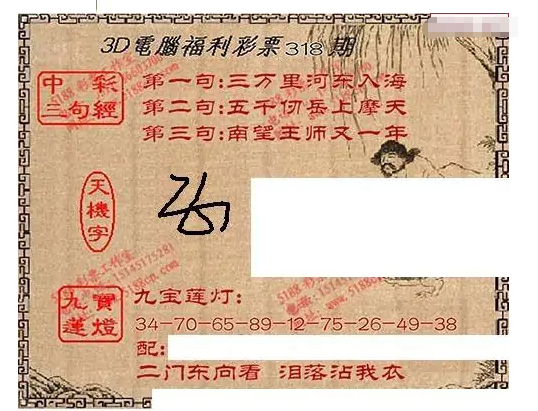 3D電腦福利彩票318期
中彩三句經
第一句:三万里河东入海
第二句:五千仞岳上摩天
第三句:南望王师又一年
天機字
九寶蓮燈
九宝莲灯:
34-70-65-89-12-75-26-49-38
配:
二门东向看 泪落沾我衣